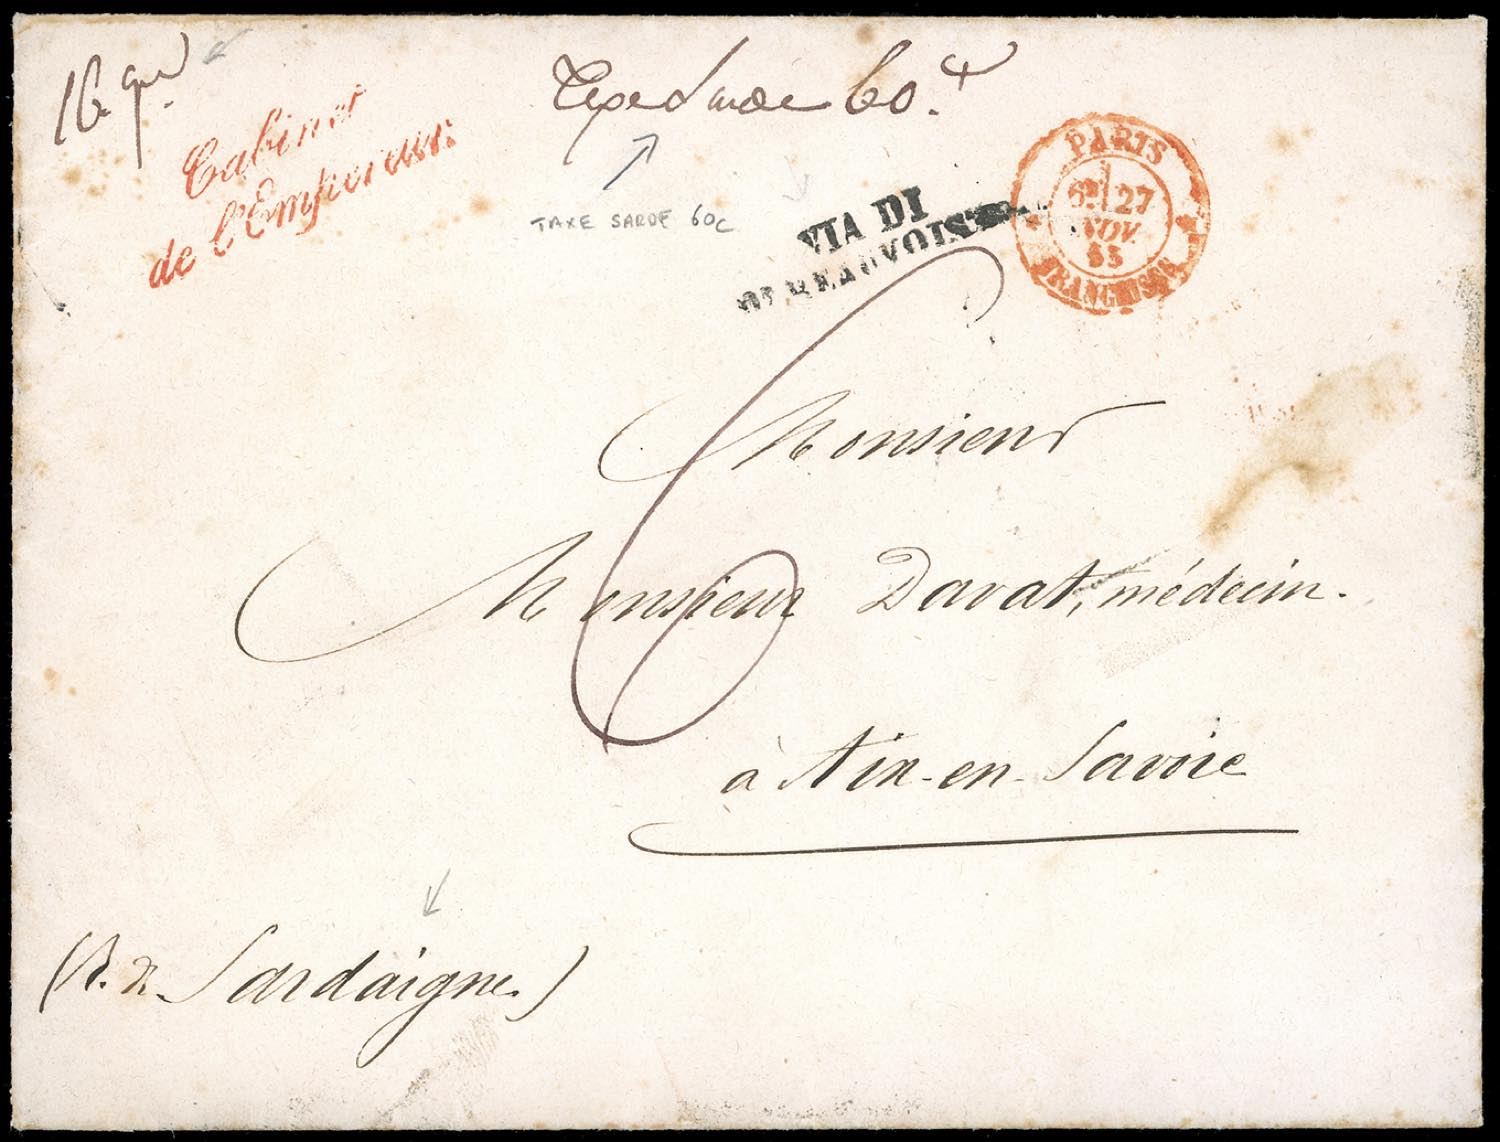 16 gr.
Cabinet
de l'Empereur.
Taxe Sarde 60.c
TAXE SARDE 60c
VIA DI
PT BEAUVOISIN
PARIS
27
NOV.
53
Monsieur
Monsieur Davat, médecin.
à Aix-en-Savoie
6
(R. de Sardaigne)